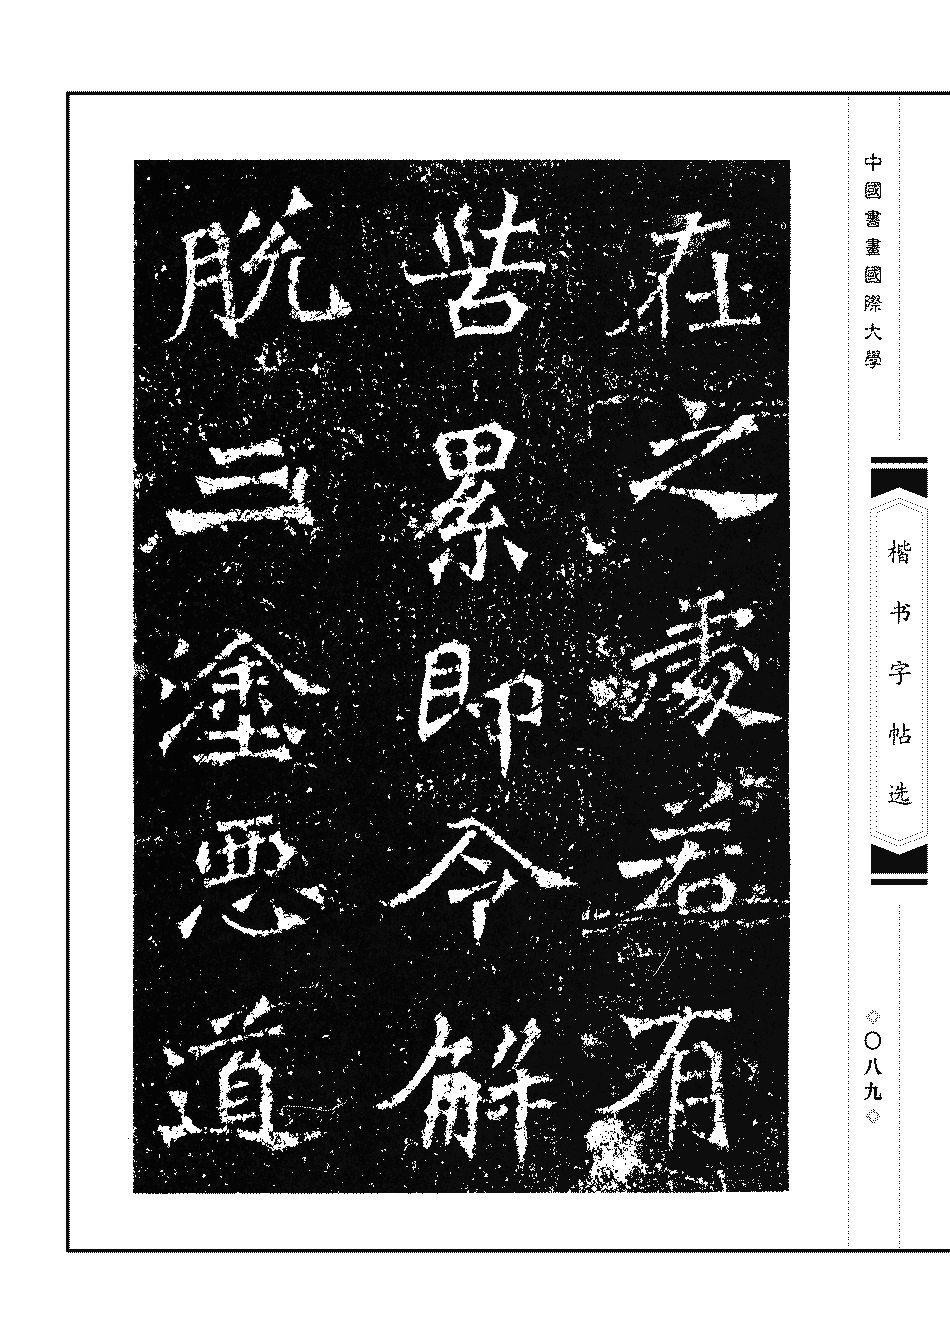 中國書畫國際大學
楷书字帖选
〇八九
在之處若有
苦累即令解
脫三塗惡道